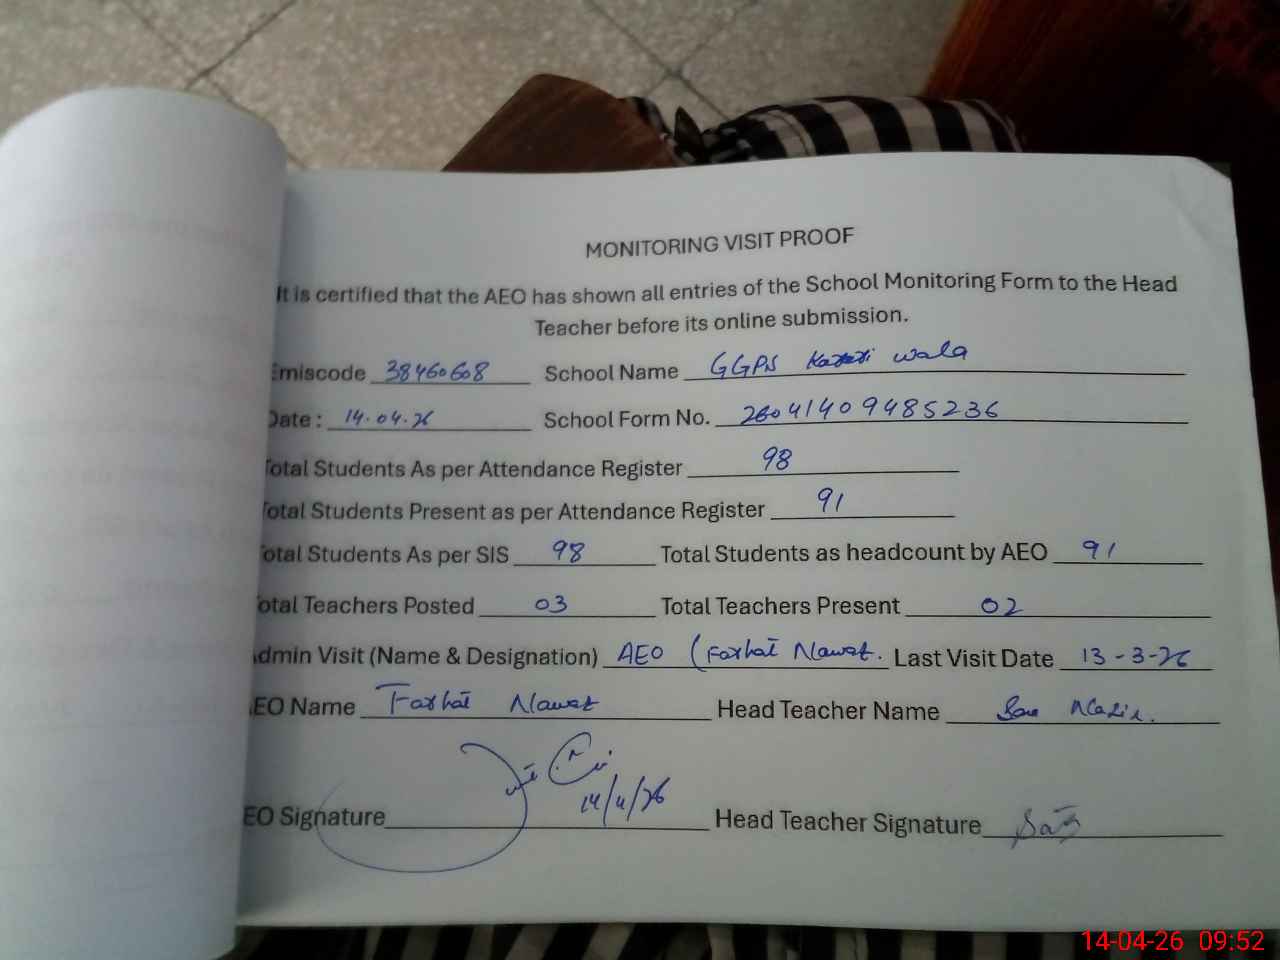 MONITORING VISIT PROOF
It is certified that the AEO has shown all entries of the School Monitoring Form to the Head
Teacher before its online submission.
Emiscode 38460608 School Name GGPS wala
Date : 14.04.26 School Form No. 26041409485236
Total Students As per Attendance Register 98
Total Students Present as per Attendance Register 91
Total Students As per SIS 98 Total Students as headcount by AEO 91
Total Teachers Posted 03 Total Teachers Present 02
Admin Visit (Name & Designation) AEO (Farhat Nawaz. Last Visit Date 13-3-26
AEO Name Farhat Nawaz Head Teacher Name Nazir.
14/4/26
AEO Signature Head Teacher Signature
14-04-26 09:52